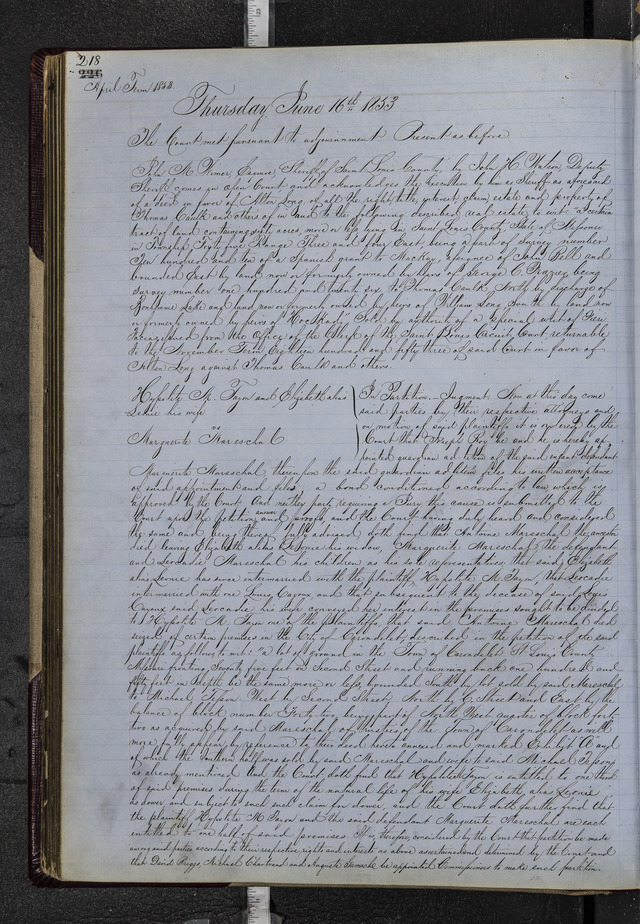 218
April Term 1853
Thursday June 16th 1853
The Court met pursuant to adjournment. Present as before
Sheriff of Saint Louis County, by John H. Watson Deputy
Sheriff comes in open Court and acknowledges the execution by him as Sheriff as aforesaid
of a deed in favor of Alton Long, of all the right, title, interest, claim, estate and property of
Thomas Caulk and others of in and to the following described real estate to wit: a certain
tract of land containing sixty acres more or less lying in Saint Louis County State of Missouri
in Township Forty five Range Three and four East, being a part of survey number
Ten hundred and ten of a Spanish grant to Mackay assignee of John Bell and
bounded East by land now or formerly owned by heirs of George C. being
survey number one hundred and twenty six, to Thomas Caulk, North by
Bonhomme Lake and land now or formerly owned by heirs of William Long South by land now
or formerly owned by heirs of Sold by authority of a special writ of Fieri
Facias issued from the Office of the Clerk of the Saint Louis Circuit Court returnable
to the November Term Eighteen hundred and fifty three of said Court in favor of
Alton Long against Thomas Caulk and others.
Hypolite M. and Elizabeth alias
his wife
vs
Marguerite Mareschal
In Partition. Judgment. Now at this day come
said parties by their respective attorneys and
on motion of said plaintiffs it is ordered by the
Court that Joseph be and he is hereby ap-
pointed guardian ad litem of the said infant defendant
Marguerite Mareschal thereupon the said guardian ad litem files his written acceptance
of said appointment and files a bond conditioned according to law which is
approved by the Court. And neither party requiring a Jury this cause is submitted to the
Court upon the petition, answer and proofs and the Court having duly heard and considered
the same and being fully advised doth find that Antoine Mareschal the ancestor
died leaving Elizabeth alias his widow, Marguerite Mareschal the defendant
and Leocadie Mareschal his children as his sole representatives, that said Elizabeth
alias has since intermarried with the plaintiff Hypolite M. that Leocadie
intermarried with one Louis and that subsequent to the decease of said Louis
said Leocadie his wife conveyed her interest in the premises sought to be divided
to Hypolite M. one of the plaintiffs that said Antoine Mareschal died
seized of certain premises in the City of Carondelet, described in the petition of the said
plaintiffs as follows to wit: "a lot of ground in the Town of Carondelet St. Louis County
Missouri fronting Seventy five feet on Second Street and running back one hundred and
fifty feet in depth be the same more or less, bounded South by a lot sold by said Mareschal
to Michael West by Second Street, North by C. Street and East by the
balance of block number Forty two, being part of North West quarter of block forty
two as acquired by said Mareschal of trustees of the Town of Carondelet as will
more fully appear by reference to their deed hereto annexed and marked Exhibit A and
of which the Southern half was sold by said Mareschal and wife to said Michael
as already mentioned. And the Court doth find that Hypolite is entitled to one third
of said premises during the term of the natural life of his wife Elizabeth, alias
as dower and subject to such claim for dower, and the Court doth further find that
the plaintiff Hypolite M. and the said defendant Marguerite Mareschal are each
entitled to one half of said premises. It is therefore considered by the Court that partition be made
among said parties according to their respective rights and interests as above ascertained and determined by the Court and
that David Michael Chartrand and Auguste be appointed Commissioners to make such partition.